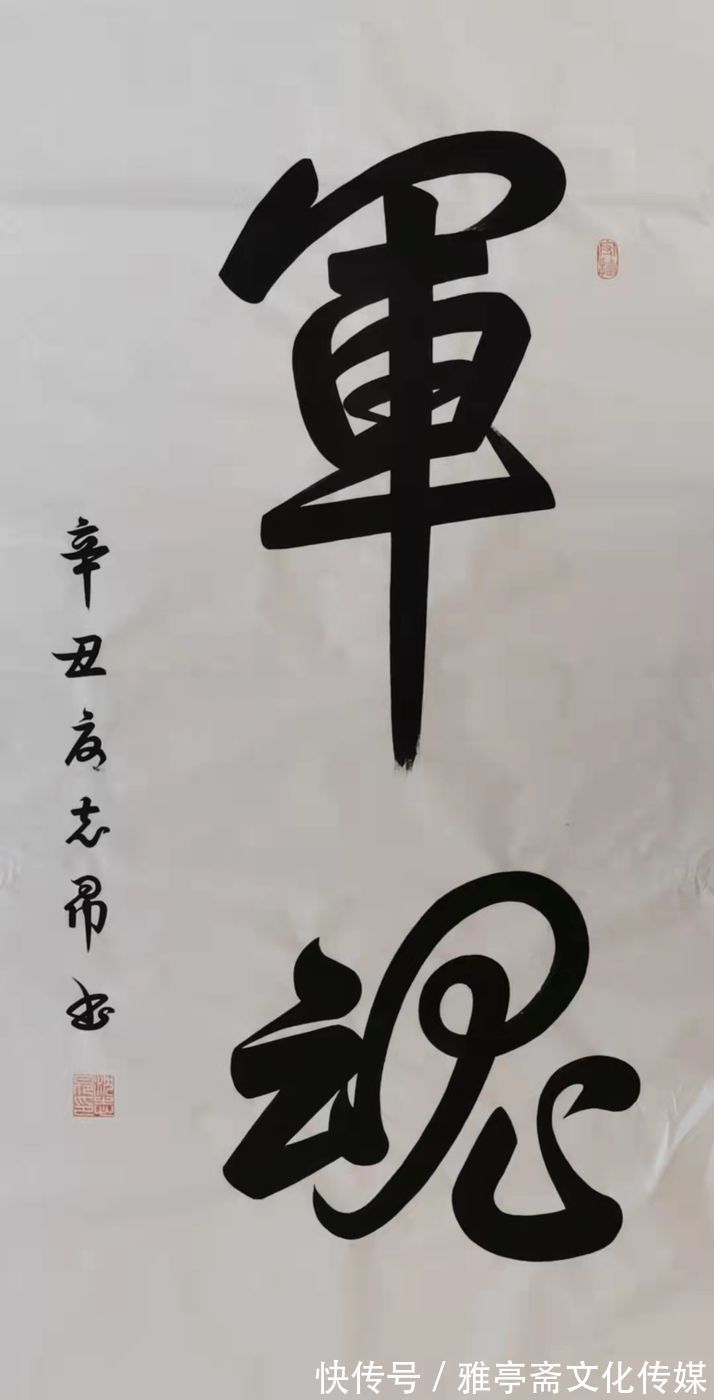 軍魂
辛丑夏志昂书
快传号 / 雅亭斋文化传媒